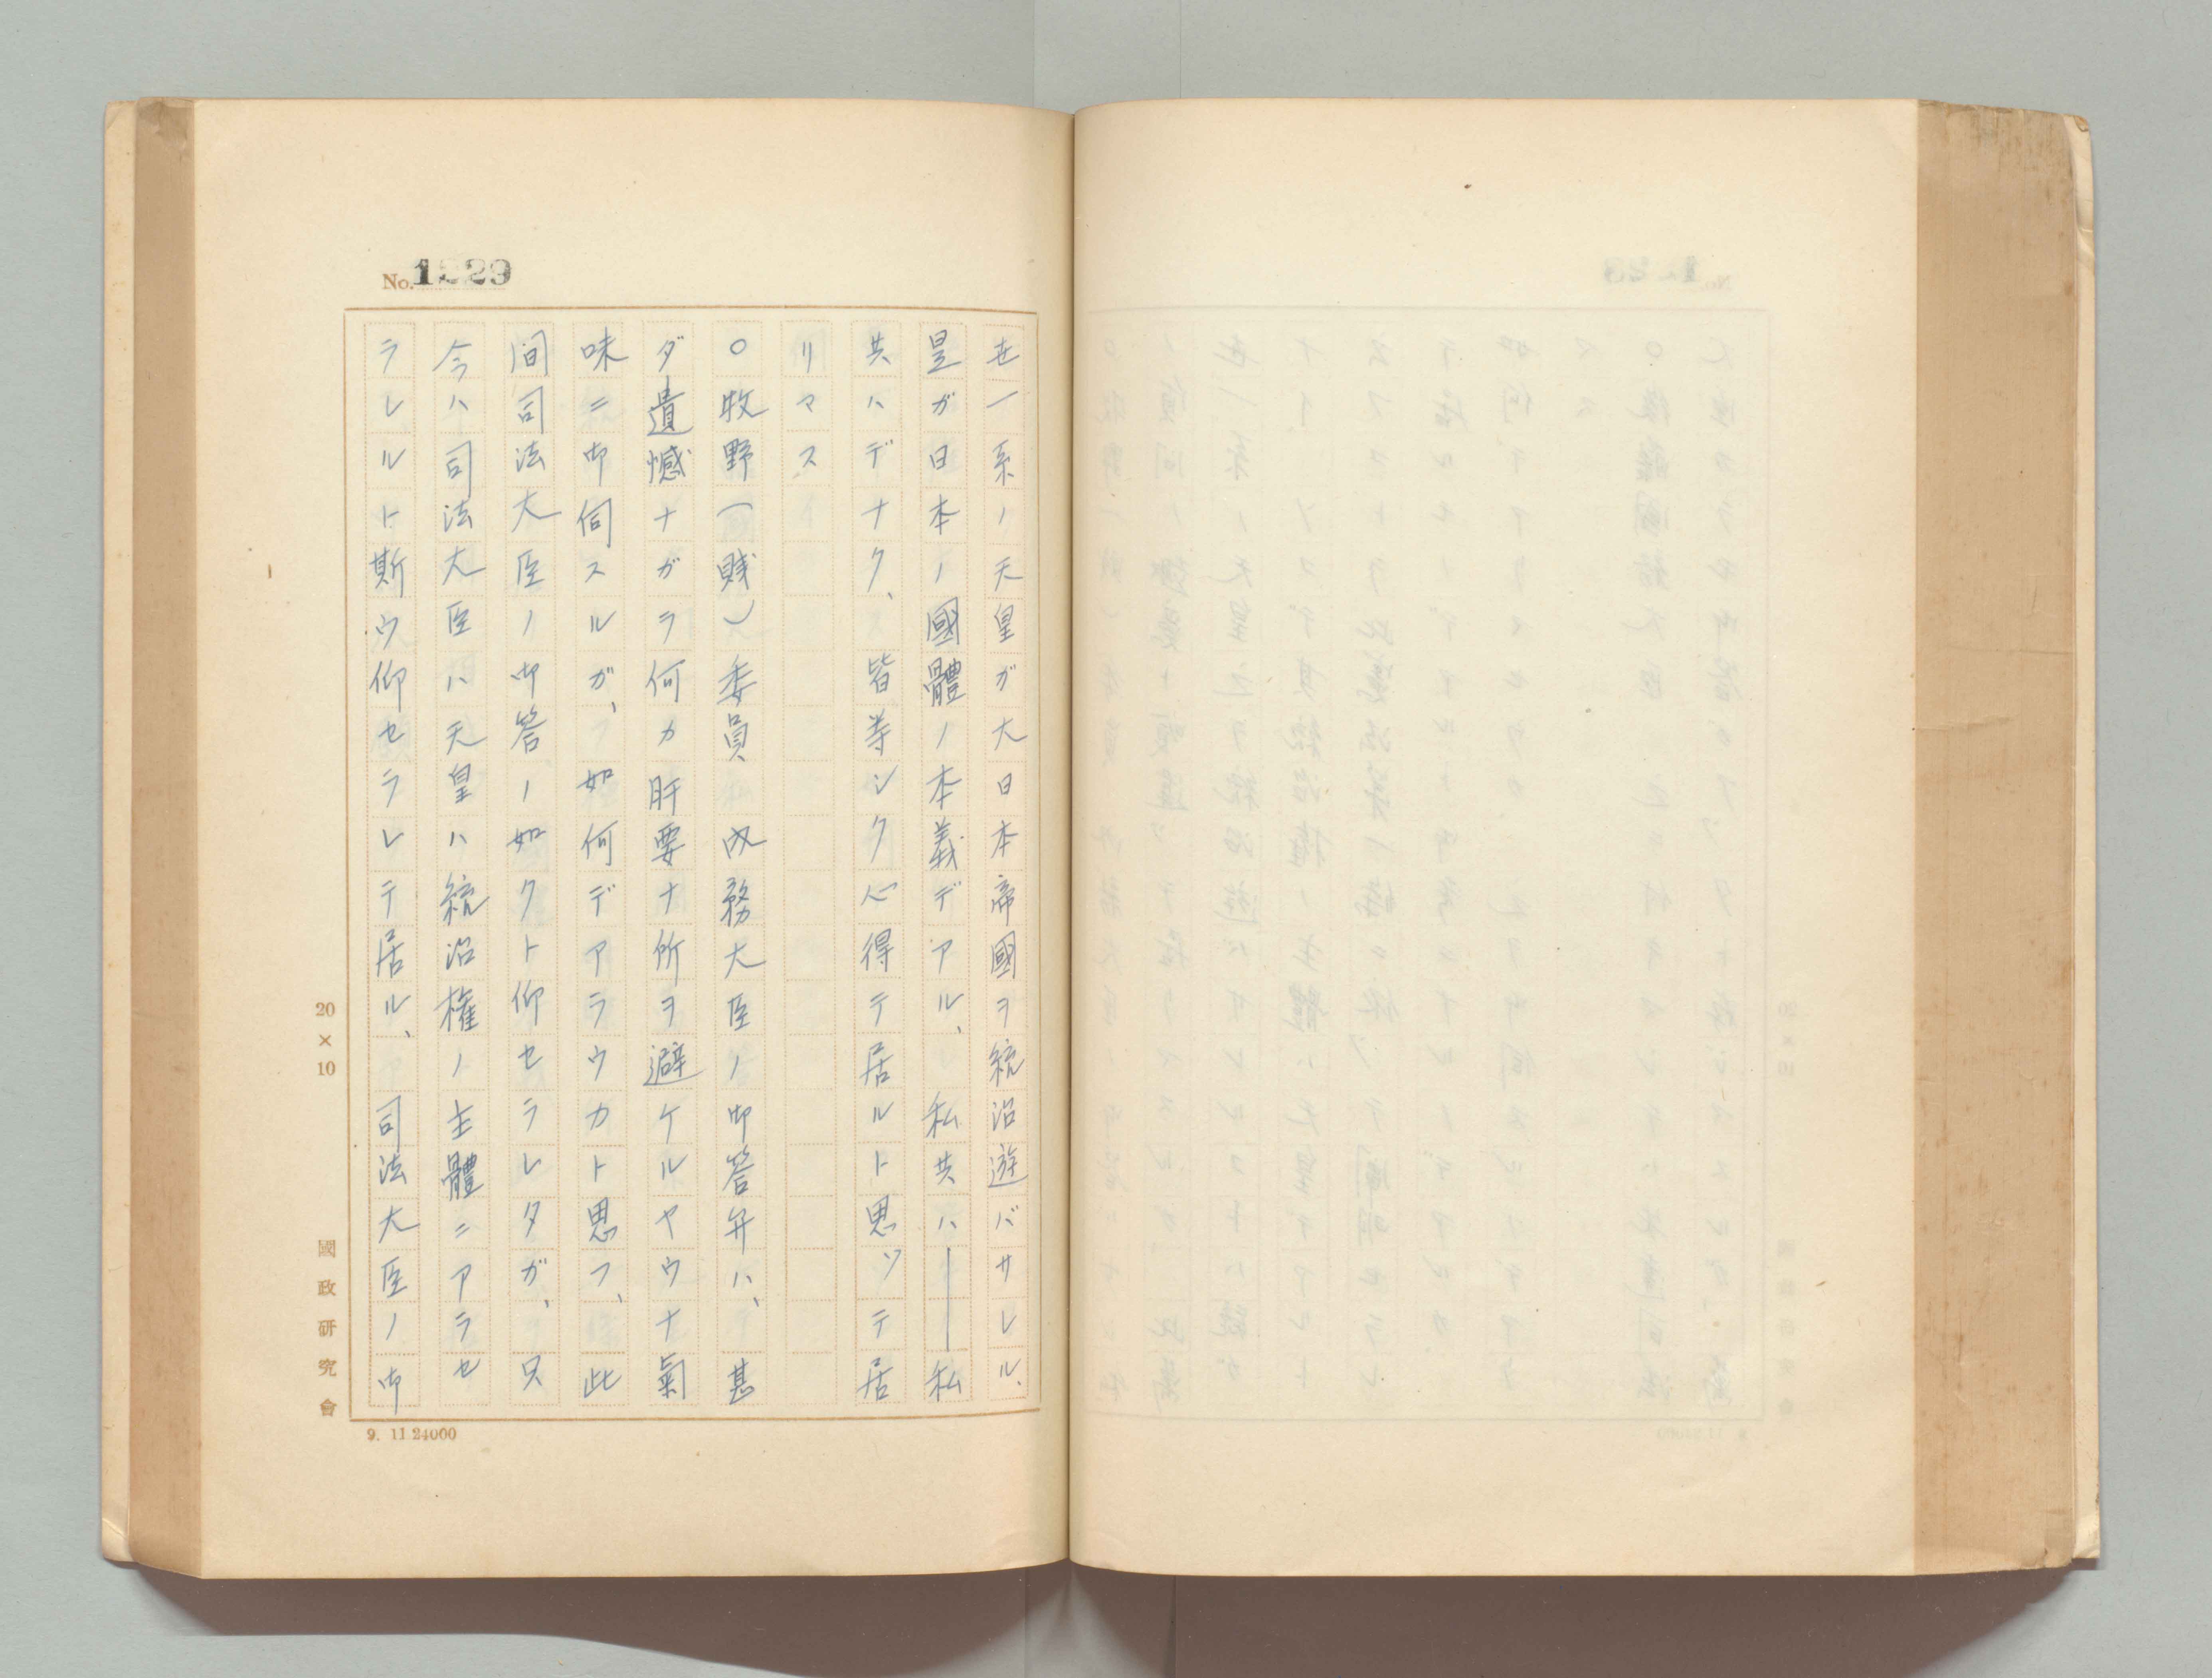 No. 1229
世一系ノ天皇ガ大日本帝國ヲ統治遊バサレル、
皇ガ日本ノ國體ノ本義デアル、私共ハ――私
共ハデナク、皆等シク心得テ居ルト思ツテ居
リマス
〇牧野(賤)委員 内務大臣ノ御答弁ハ、甚
ダ遺憾ナガラ何カ肝要ナ所ヲ避ケルヤウナ氣
味ニ御伺スルガ、如何デアラウカト思フ、此
間司法大臣ノ御答ノ如クト仰セラレタガ、只
今ハ司法大臣ハ天皇ハ統治権ノ主體ニアラセ
ラレルト斯ウ仰セラレテ居ル、司法大臣ノ御
20×10
國政研究會
9. 11 24000